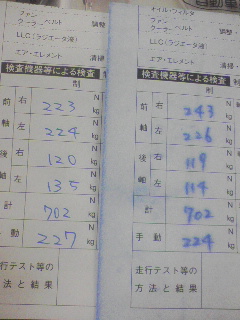 ファン
クーラーベルト 調整
LLC(ラジエータ液)
エア・エレメント 清掃
検査機器等による検査
制
前軸 右 223 N kg
左 224 N kg
後軸 右 120 N kg
左 135 N kg
計 702 N kg
手動 227 N kg
走行テスト等の
方法と結果
オイル・フィルタ
ファン
クーラーベルト 調整
LLC(ラジエータ液)
エア・エレメント 清掃
検査機器等による検査
制
前軸 右 243 N kg
左 226 N kg
後軸 右 119 N kg
左 114 N kg
計 702 N kg
手動 224 N kg
走行テスト等の
方法と結果